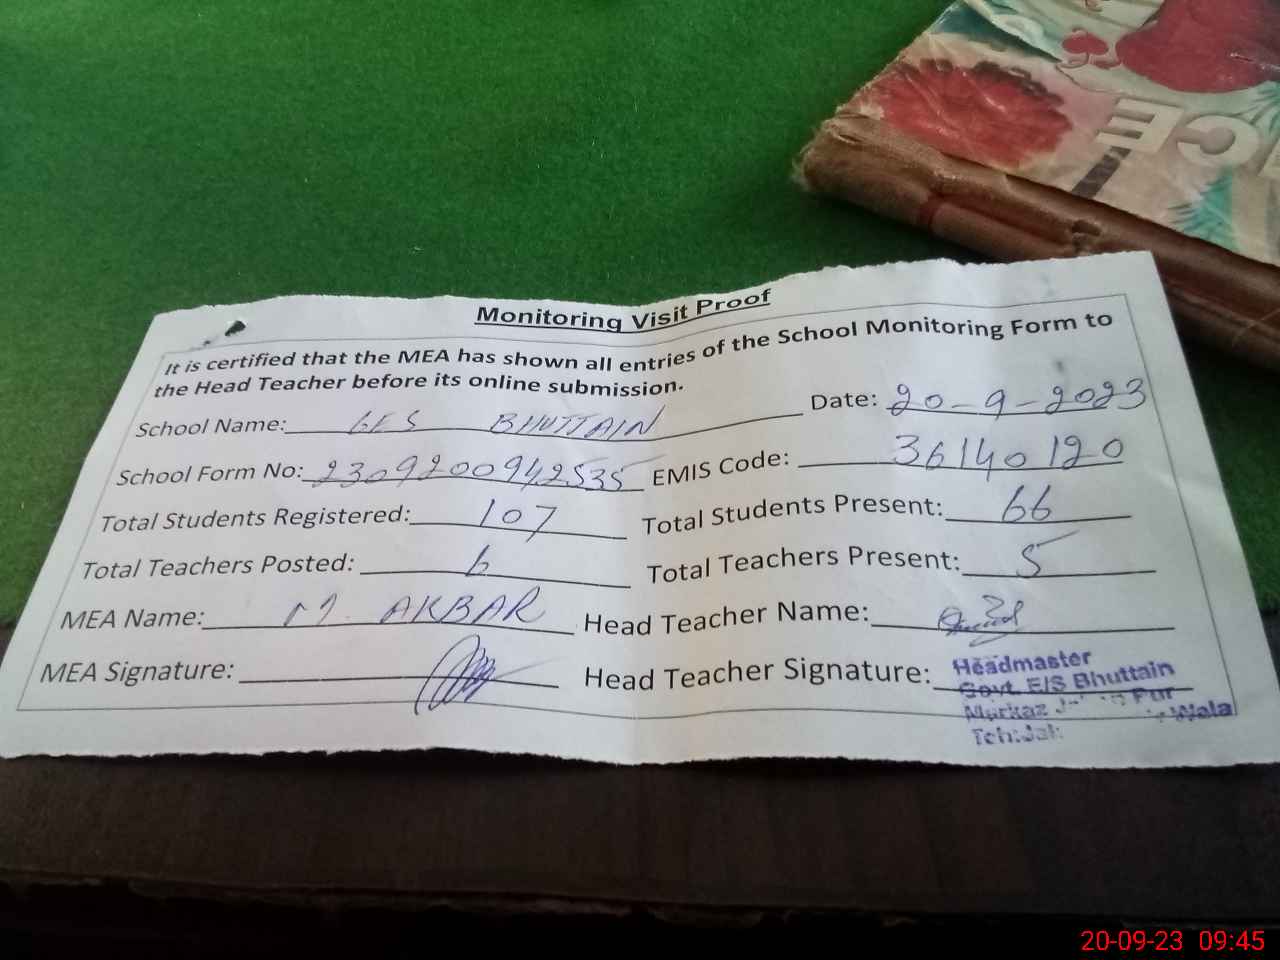 CE
Monitoring Visit Proof
It is certified that the MEA has shown all entries of the School Monitoring Form to
the Head Teacher before its online submission.
School Name: GES BHUTTAIN Date: 20-9-2023
School Form No: 2309200942535 EMIS Code: 36140120
Total Students Registered: 107 Total Students Present: 66
Total Teachers Posted: 6 Total Teachers Present: 5
MEA Name: M. AKBAR Head Teacher Name:
MEA Signature: Head Teacher Signature:
Headmaster
Govt. E/S Bhuttain
Markaz Pur
Wala
20-09-23 09:45